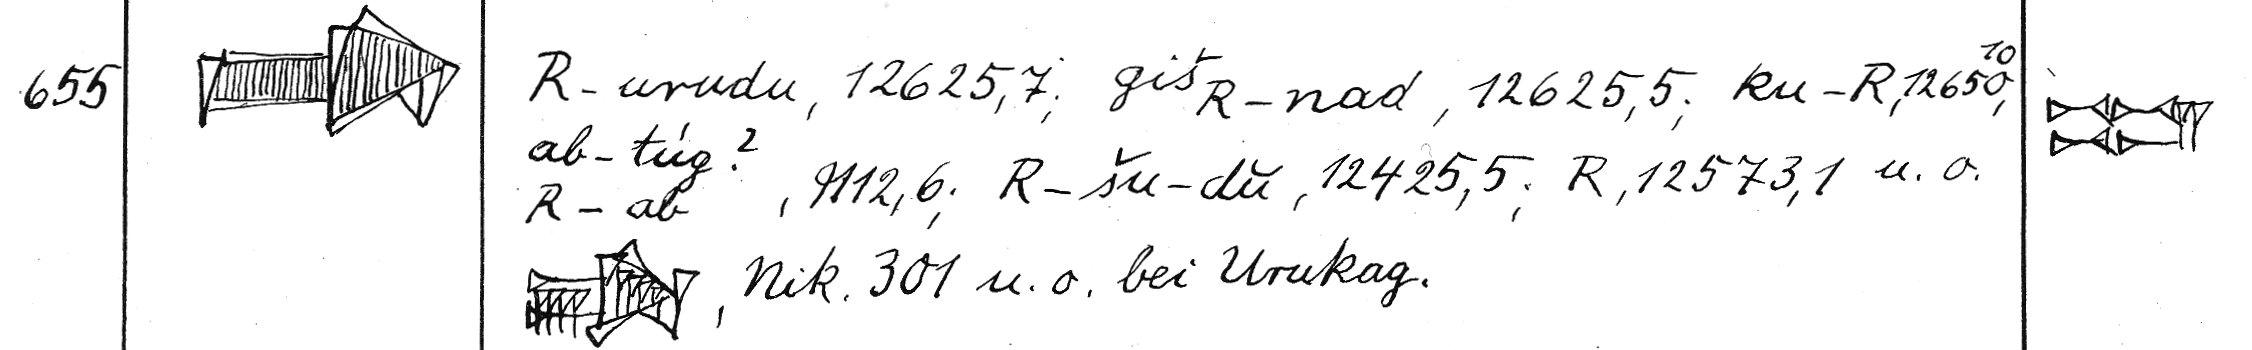 655 R-urudu, 12625,7; giš R-nad, 12625,5; ku-R, 12650,10,
ab-túg?
R-ab, 9112,6; R-šu-dŭ, 12425,5; R, 12573,1 u. o.
, Nik. 301 u. o. bei Urukag.